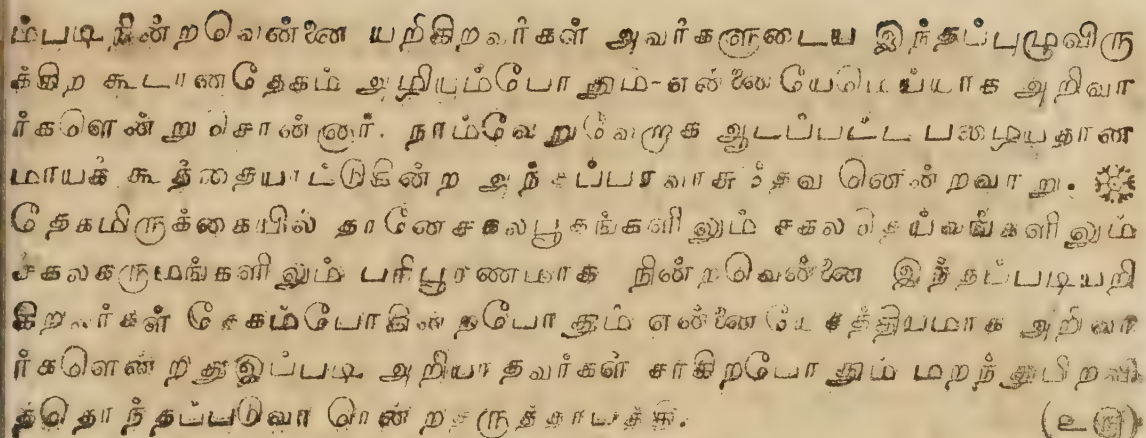 ம்படிநின்றவென்னை யறிகிறவர்கள் அவர்களுடைய இந்தப்புழுவிரு
க்கிற கூடானதேகம் அழியும்போதும்-என்னையேமெய்யாக அறிவா
ர்களென்று சொன்னார். நாம்வேறுவேறாக ஆடப்பட்ட பழையதான
மாயக் கூத்தையாட்டுகின்ற அந்தப்பரவாசுதேவ னென்றவாறு. ❋
தேகமிருக்கையில் தானேசகலபூதங்களிலும் சகலதெய்வங்களிலும்
சகலகருமங்களிலும் பரிபூரணமாக நின்றவென்னை இந்தப்படியறி
கிறவர்கள் தேகம்போகின்றபோதும் என்னையே சத்தியமாக அறிவா
ர்களென்றிதுஇப்படி அறியாதவர்கள் சாகிறபோதும் மறந்துபிறவி
த்தொந்தப்படுவா ரென்றகருத்தாயத்து. (உரு)